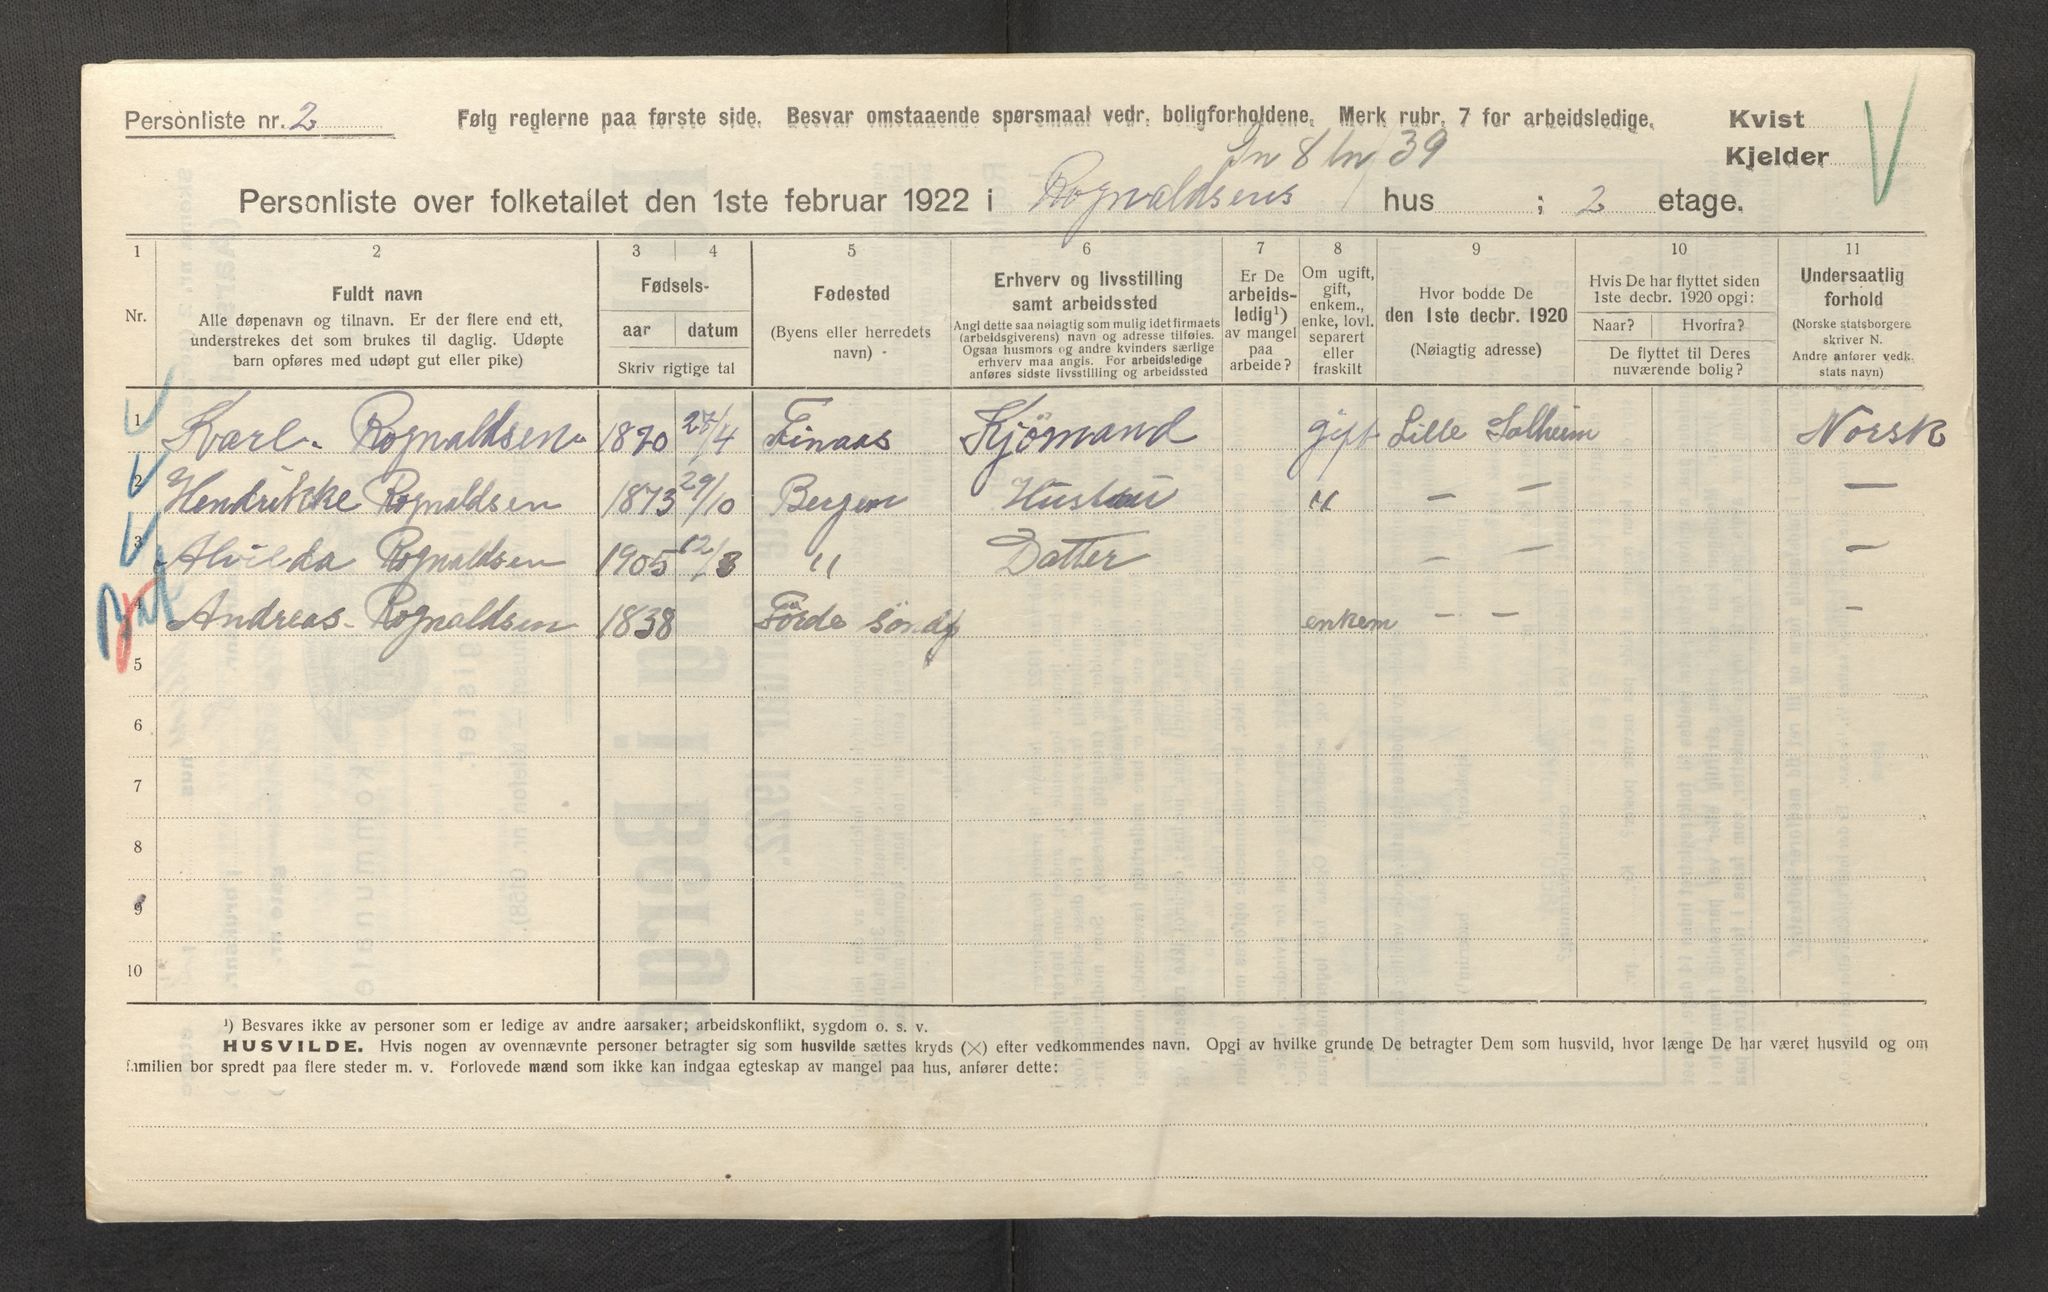 Personliste nr. 2
Følg reglerne paa første side. Besvar omstaaende spørsmaal vedr. boligforholdene. Merk rubr. 7 for arbeidsledige.
Kvist
Kjelder
Gn 8 bn 39
Personliste over folketallet den 1ste februar 1922 i Rognvaldsens hus ; 2 etage.
1 2 3 4 5 6 7 8 9 10 11
Nr.
Fuldt navn
Alle døpenavn og tilnavn. Er der flere end ett,
understrekes det som brukes til daglig. Udøpte
barn opføres med udøpt gut eller pike)
Fødsels-
aar datum
Skriv rigtige tal
Fødested
(Byens eller herredets
navn)
Erhverv og livsstilling
samt arbeidssted
Angi dette saa nøiagtig som mulig idet firmaets
(arbeidsgiverens) navn og adresse tilføies.
Ogsaa husmors og andre kvinders særlige
erhverv maa angis. For arbeidsledige
anføres sidste livsstilling og arbeidssted
Er De
arbeids-
ledig¹)
av mangel
paa
arbeide?
Om ugift,
gift,
enkem.,
enke, lovl.
separert
eller
fraskilt
Hvor bodde De
den 1ste decbr. 1920
(Nøiagtig adresse)
Hvis De har flyttet siden
1ste decbr. 1920 opgi:
Naar? Hvorfra?
De flyttet til Deres
nuværende bolig?
Undersaatlig
forhold
(Norske statsborgere
skriver N.
Andre anfører vedk.
stats navn)
1 Karl Rognaldsen 1870 /4 Finaas gift Lille Solheim Norsk
2 Hendrikke Rognaldsen 1873 29/10 Bergen Hustru " — — —
3 Alvilda Rognaldsen 1905 12/3 " Datter — — —
4 Andreas Rognaldsen 1838 Förde enkem — — —
5
6
7
8
9
10
¹) Besvares ikke av personer som er ledige av andre aarsaker; arbeidskonflikt, sygdom o. s. v.
HUSVILDE. Hvis nogen av ovennævnte personer betragter sig som husvilde sættes kryds (×) efter vedkommendes navn. Opgi av hvilke grunde De betragter Dem som husvild, hvor længe De har været husvild og om
familien bor spredt paa flere steder m. v. Forlovede mænd som ikke kan indgaa egteskap av mangel paa hus, anfører dette: